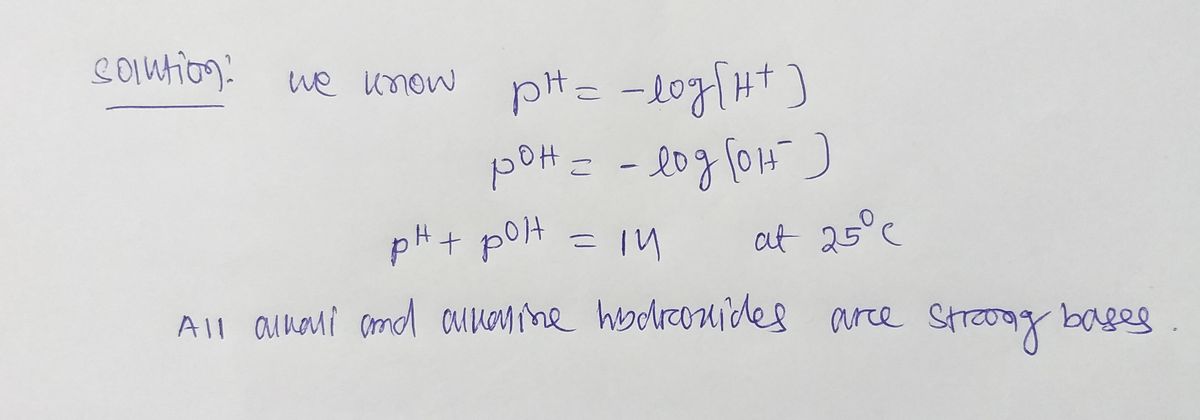 Solution: we know pH = -log[H+]
pOH = -log[OH-]
pH + pOH = 14 at 25°C
All alkali and alkaline hydroxides are strong bases.